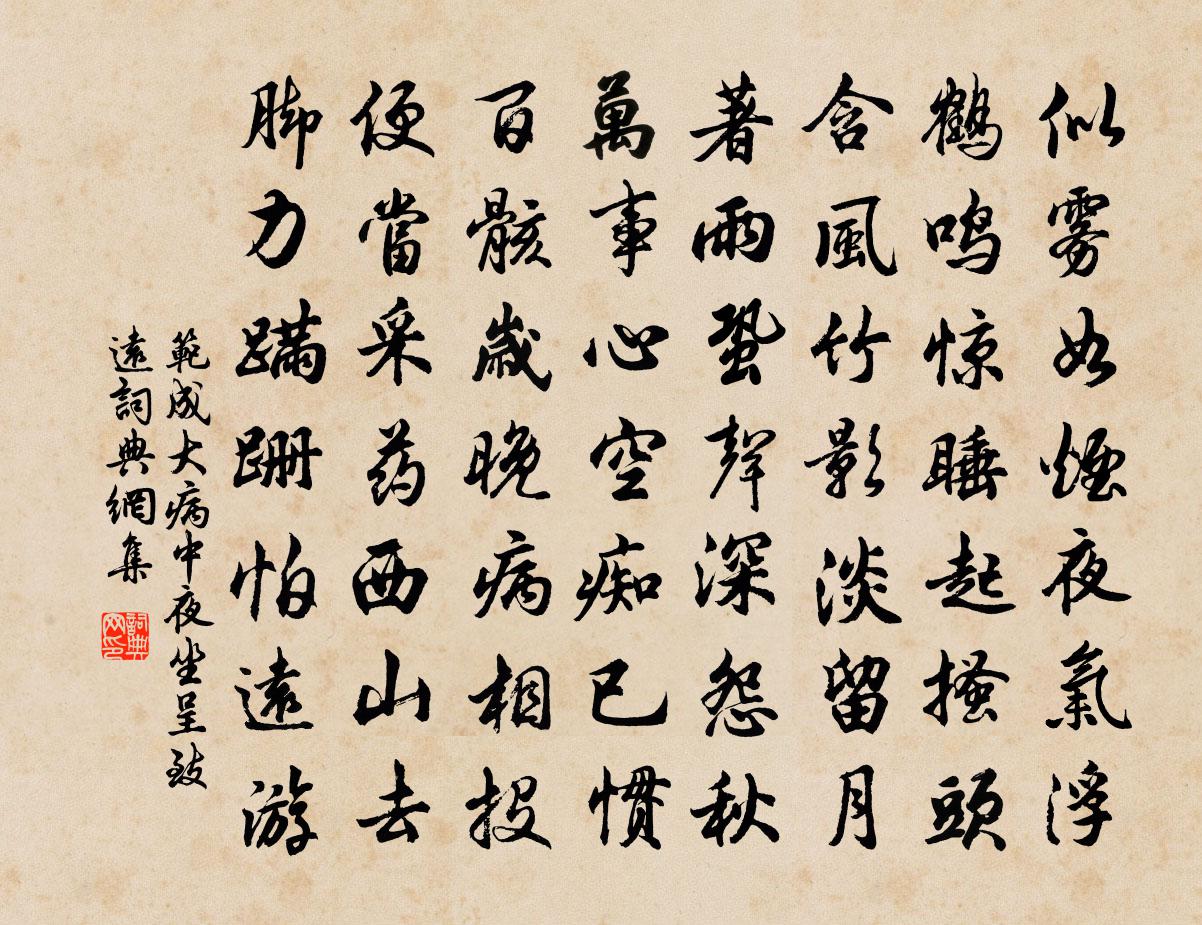 似雾如煙夜氣浮
鶴鸣惊睡起搔頭
含風竹影淡留月
著雨蛩聲深怨秋
萬事心空痴已慣
百骸歲晚病相投
便當采药西山去
脚力蹣跚怕遠游
範成大病中夜坐呈致
遠詞典網集
詞典网印